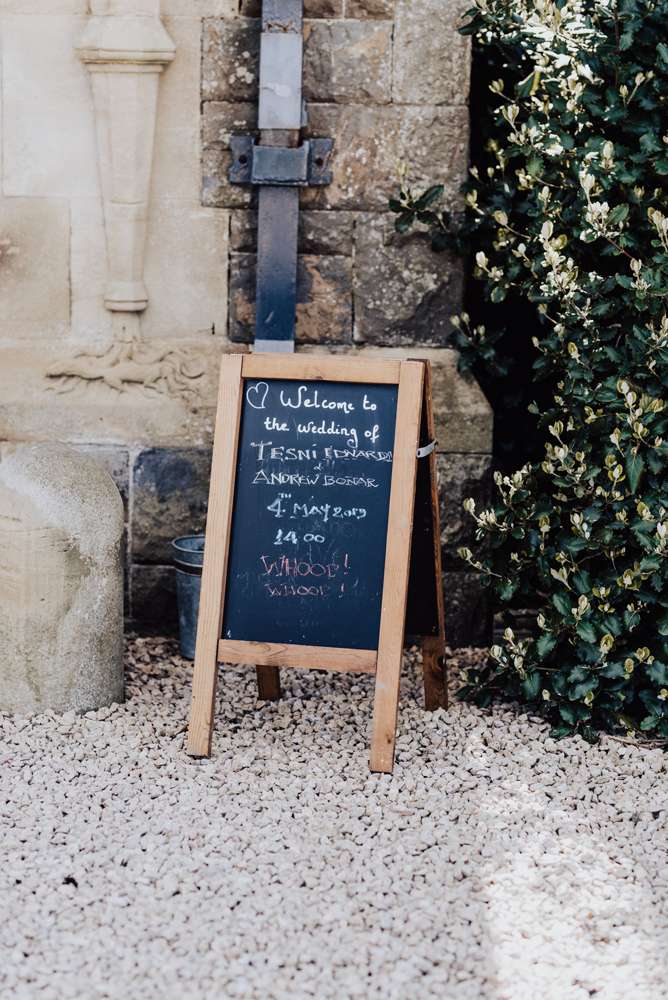 Welcome to
the wedding of
TESNI EDWARDS
&
ANDREW BONAR
4TH MAY 2019
14 00
WHOOP!
WHOOP!